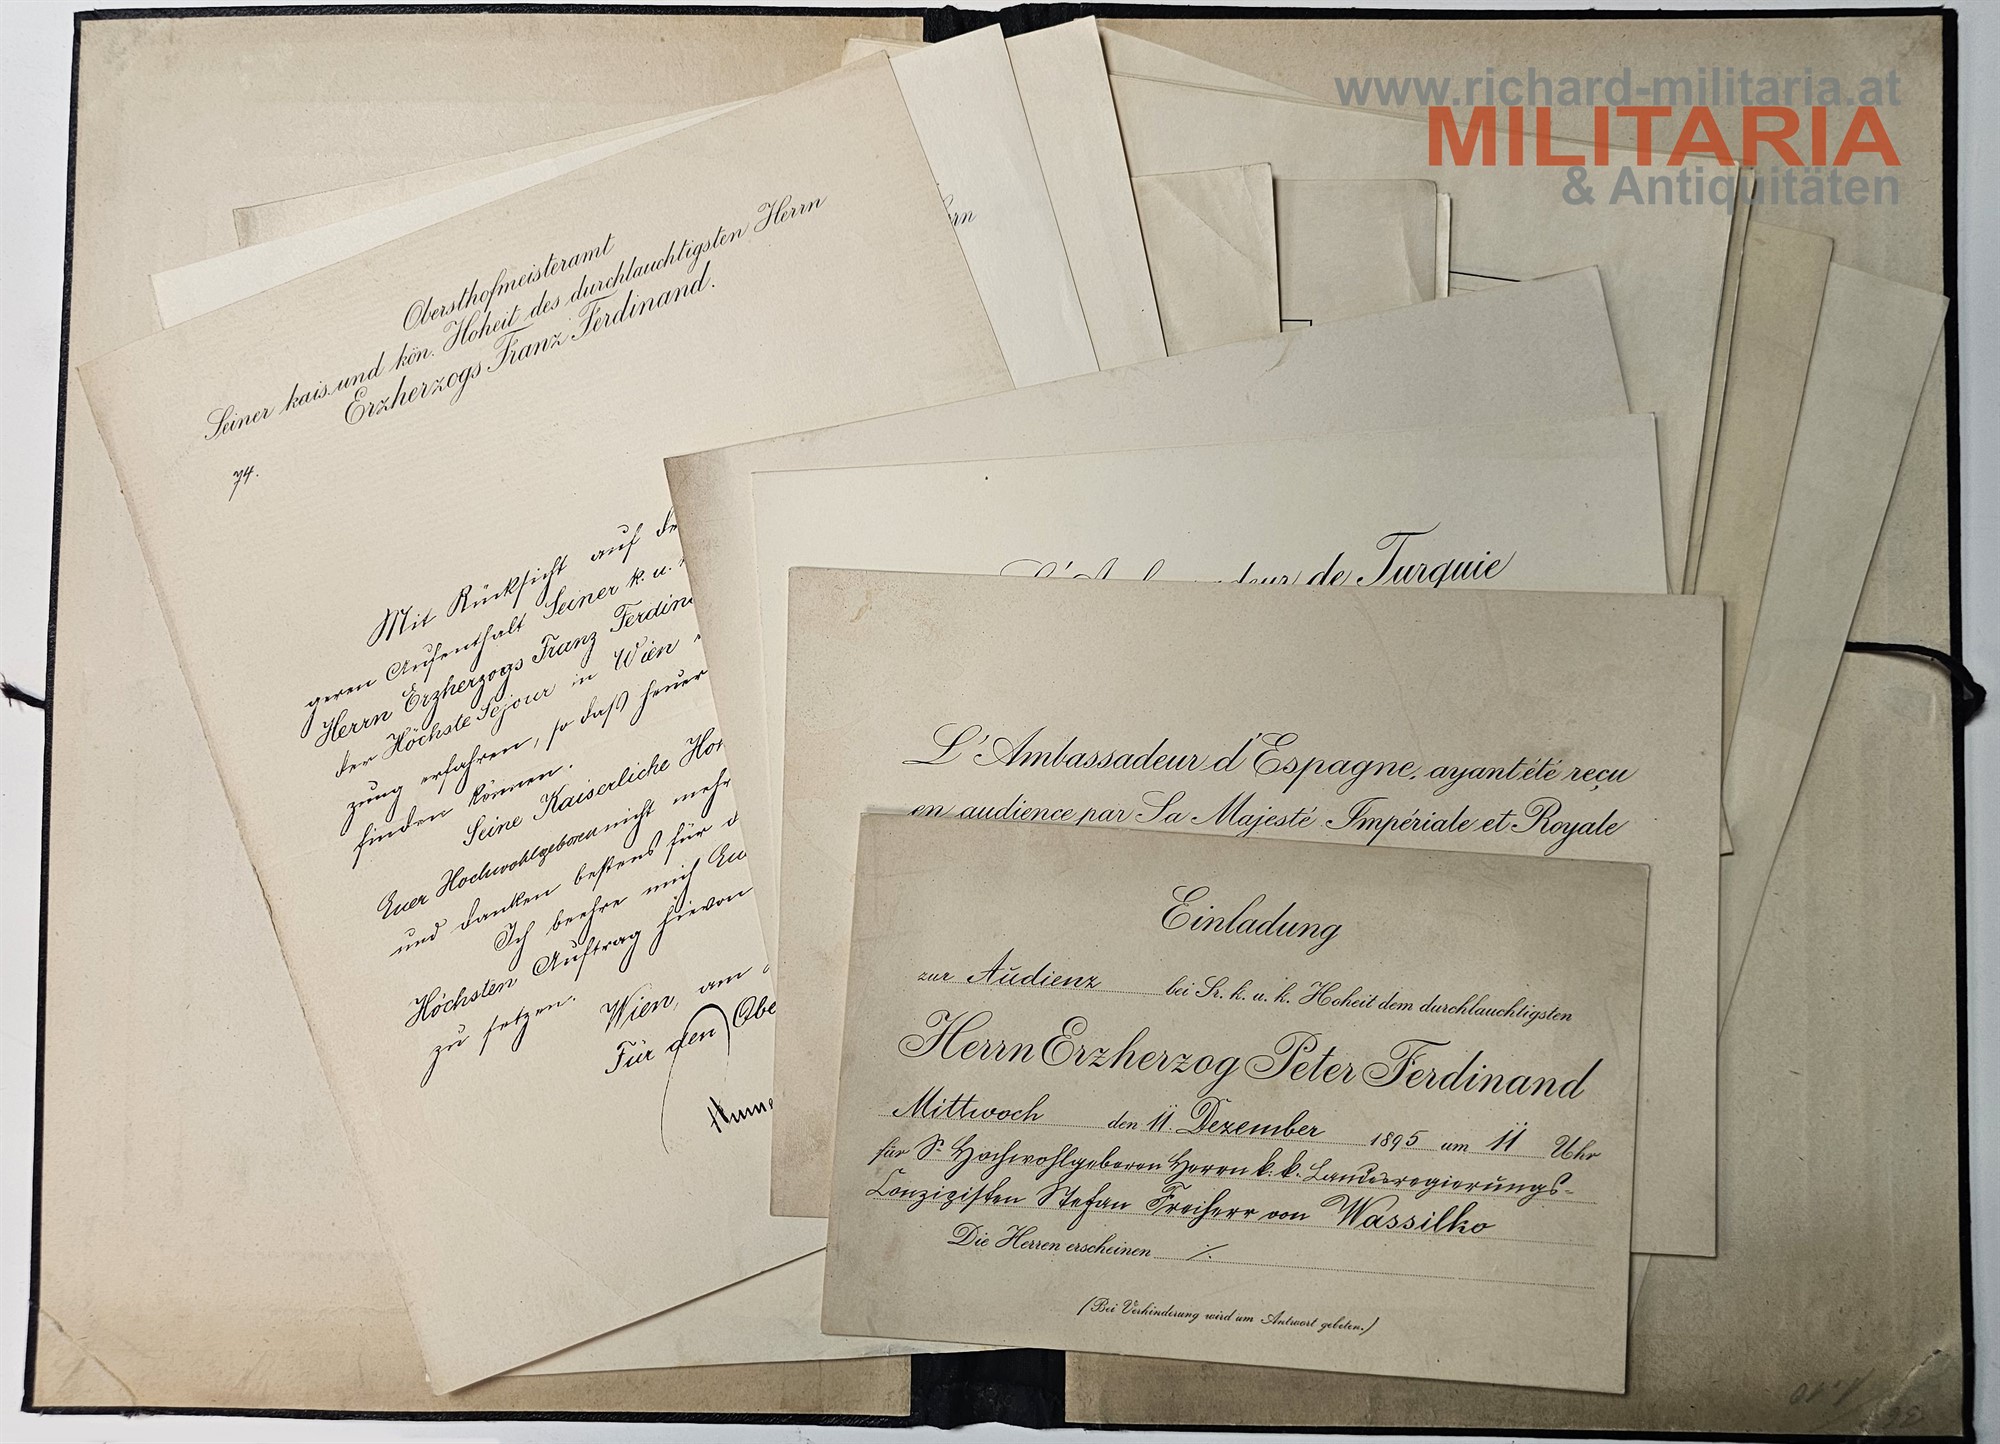 www.richard-militaria.at
MILITARIA
& Antiquitäten
Obersthofmeisteramt
Seiner kais. und kön. Hoheit des durchlauchtigsten Herrn
Erzherzogs Franz Ferdinand.
74.
Mit Rücksicht auf
geren Aufenthalt Seiner k. u.
Herrn Erzherzogs Franz Ferdin
der Höchste Sejour in Wien
zung erfahren, so daß heuer
finden können.
Seine Kaiserliche
Euer Hochwohlgeboren nicht mehr
und danken bestens für
Ich beehre mich
Höchsten Auftrag hievon
zu setzen.
Wien, am
Für den
de Turquie
L'Ambassadeur d'Espagne, ayant été reçu
en audience par Sa Majesté Impériale et Royale
Einladung
zur Audienz bei Sr. k. u. k. Hoheit dem durchlauchtigsten
Herrn Erzherzog Peter Ferdinand
Mittwoch den 11. Dezember 1895 um 11 Uhr
für Sr Hochwohlgeboren Herrn k. k. Landesregierungs-
Conzipisten Stefan Freiherr von Wassilko
Die Herren erscheinen ./.
(Bei Verhinderung wird um Antwort gebeten.)